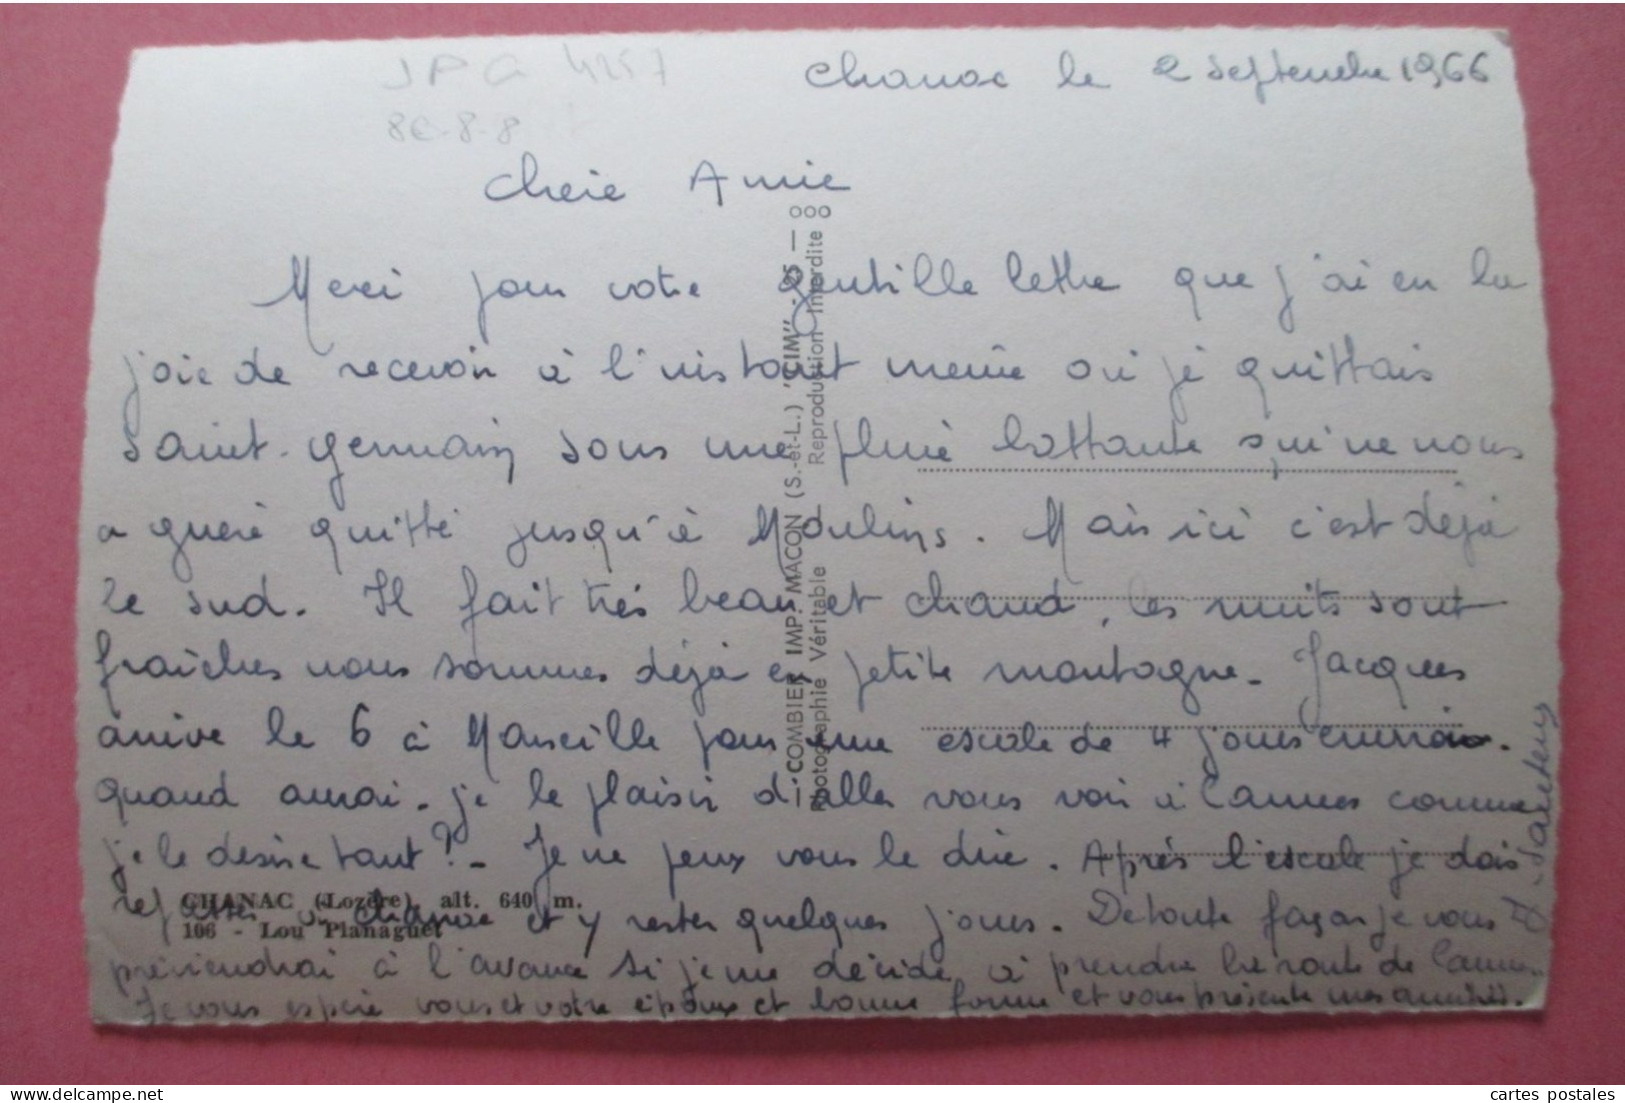 JPG 4257
8C-8-8
Chanac le 2 Septembre 1966
Chère Amie
Merci pour votre gentille lettre que j'ai eu la
joie de recevoir à l'instant même où je quittais
Saint-Germain sous une pluie battante qui ne nous
a guère quitté jusqu'à Moulins. Mais ici c'est déjà
le sud. Il fait très beau et chaud, les nuits sont
fraîches nous sommes déjà en petite montagne. Jacques
arrive le 6 à Marseille pour une escale de 4 jours environ.
quand aurai-je le plaisir d'aller vous voir à Cannes comme
je le désire tant? - Je ne peux vous le dire. Après l'escale je dois
repasser à Chanac et y rester quelques jours. De toute façon je vous
préviendrai à l'avance si je me décide à prendre la route de Cannes.
Je vous espère vous et votre époux et bonne forme et vous présente mes amitiés.
CHANAC (Lozère), alt. 640 m.
106 - Lou Planaguet
COMBIER IMP. MACON (S.-et-L.) "CIM"
Photographie Véritable Reproduction Interdite
cartes postales